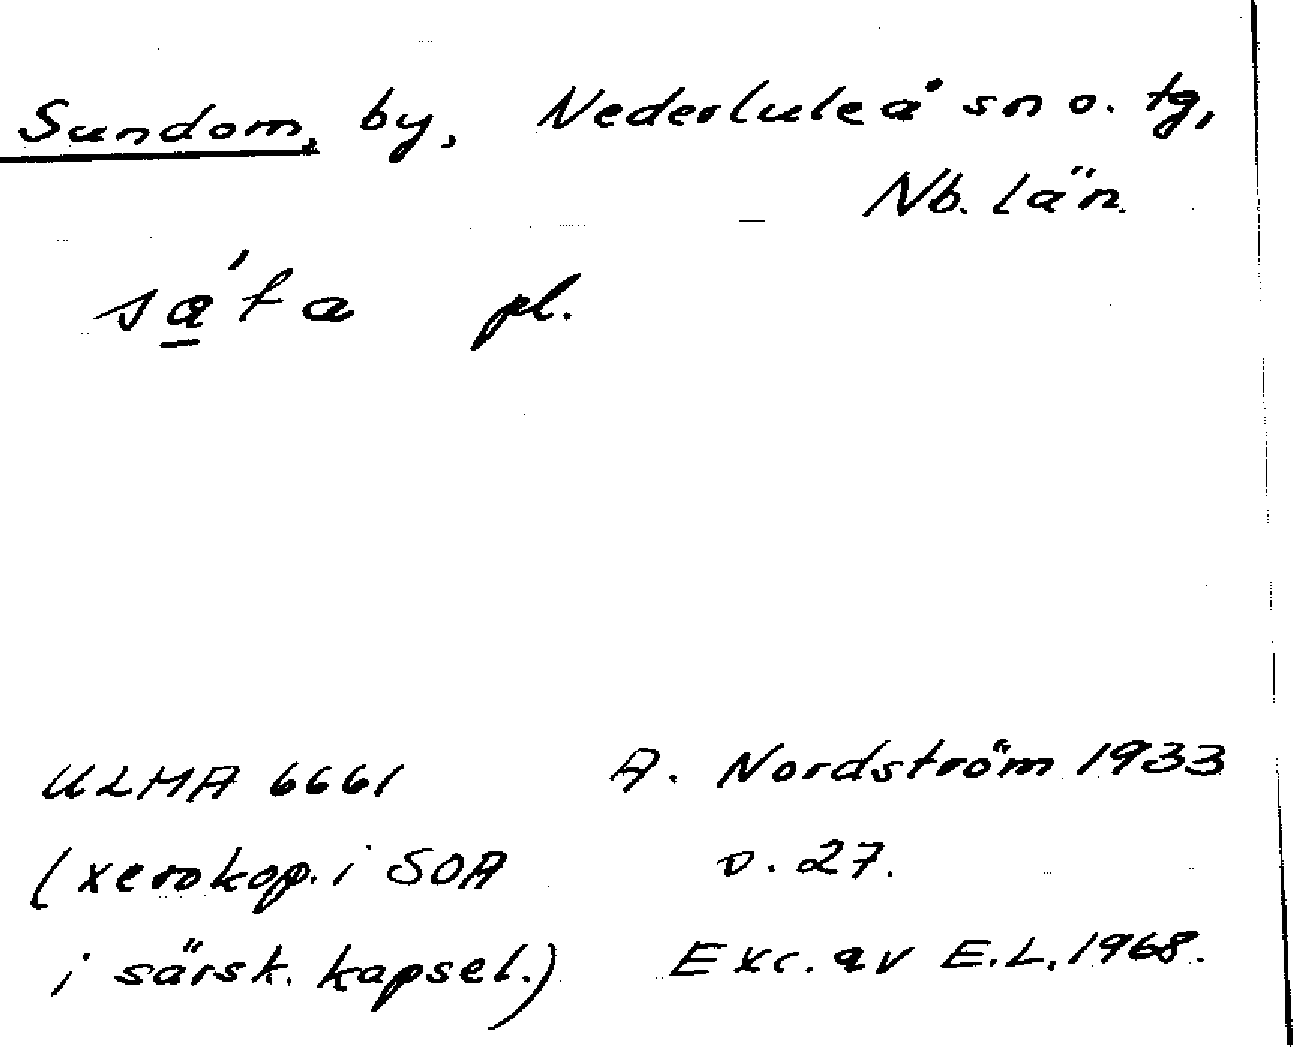 Sundom, by, Nederluleå sn o. tg,
Nb. län.
sa̲´ta pl.
ULMA 6661 A. Nordström 1933
(xerokop. i SOA s. 27.
i särsk. kapsel.) Exc. av E.L. 1968.